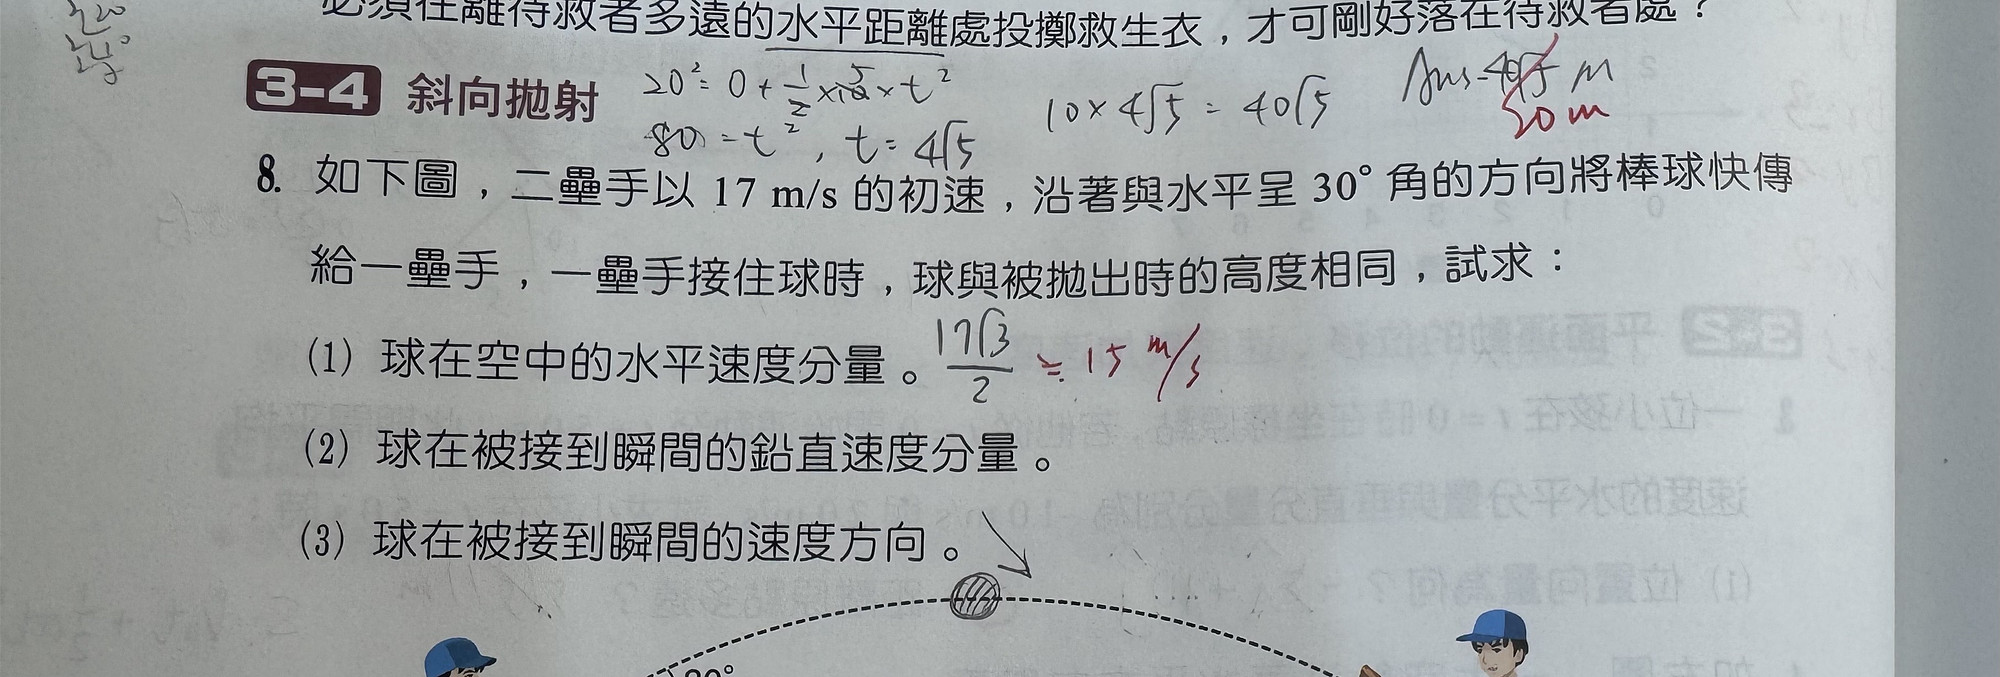 必須在離待救者多遠的水平距離處投擲救生衣，才可剛好落在待救者處？
3-4 斜向拋射
20² = 0 + 1/2 × 10 × t²
80 = t², t = 4√5
10 × 4√5 = 40√5
Ans = 40√5 m
20 m
8. 如下圖，二壘手以 17 m/s 的初速，沿著與水平呈 30° 角的方向將棒球快傳
給一壘手，一壘手接住球時，球與被拋出時的高度相同，試求：
(1) 球在空中的水平速度分量。 17√3/2 ≒ 15 m/s
(2) 球在被接到瞬間的鉛直速度分量。
(3) 球在被接到瞬間的速度方向。
30°